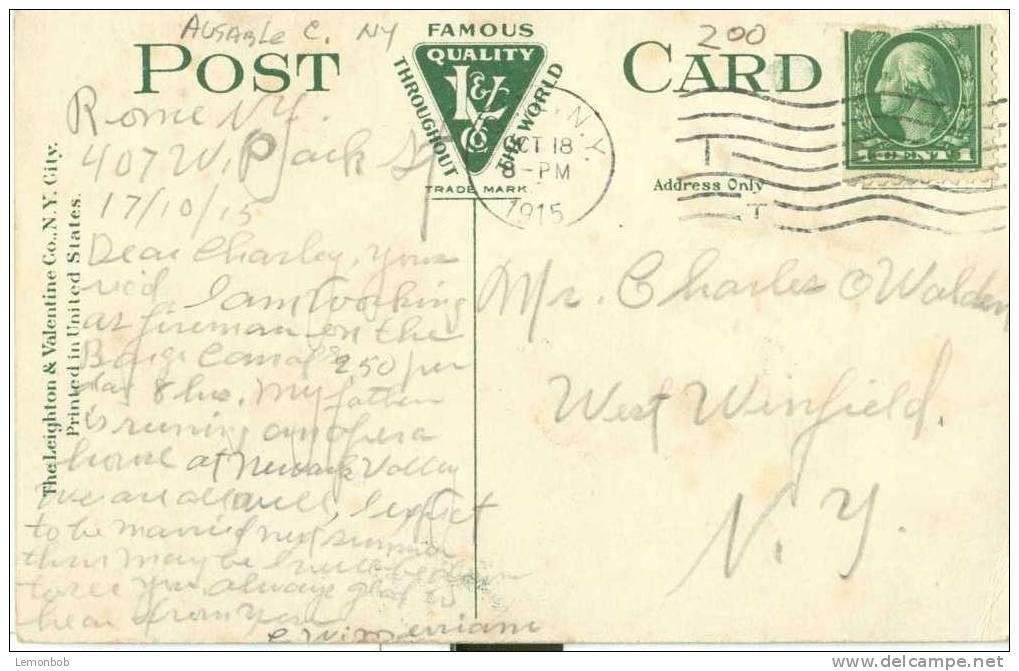 AUSABLE C. NY
200
POST CARD
FAMOUS
QUALITY
L&V
Co
THROUGHOUT
THE WORLD
TRADE MARK
N.Y.
OCT 18
8 - PM
1915
1 CENT 1
Address Only
The Leighton & Valentine Co., N.Y. City.
Printed in United States.
Rome N.Y.
407 W.
17/10/15
Dear Charley, Yours
rec'd. I am working
as fireman on the
Barge Canal $2.50 per
day 8 hrs. My father
is runing an opera
house at Newark Valley
We are all well, I expect
to be married next summer
then may be I will be down
to see you, always glad to
hear from you
Mr. Charles O Walden
West Winfield.
N.Y.
Lemonbob
www.delcampe.net